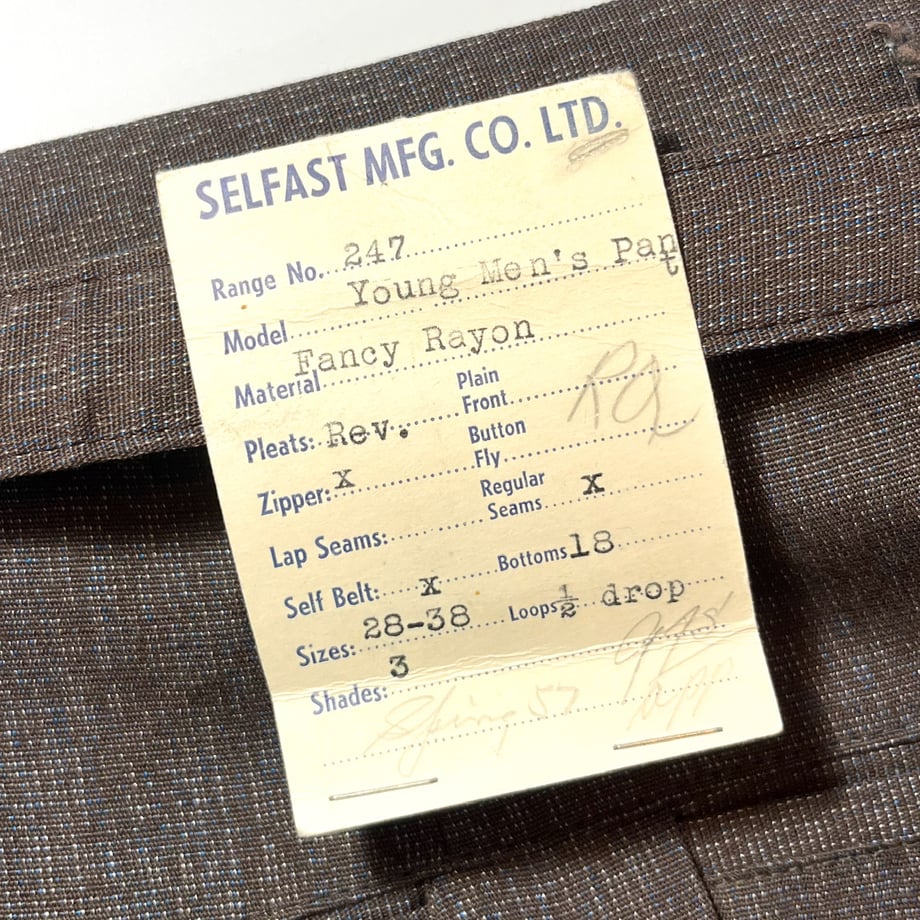 SELFAST MFG. CO. LTD.
Range No. 247
Model Young Men's Pant
Material Fancy Rayon
Pleats: Rev. Plain Front
Zipper: x Button Fly
Lap Seams: Regular Seams x
Self Belt: x Bottoms 18
Sizes: 28-38 Loops 1/2 drop
Shades: 3
Spring 57